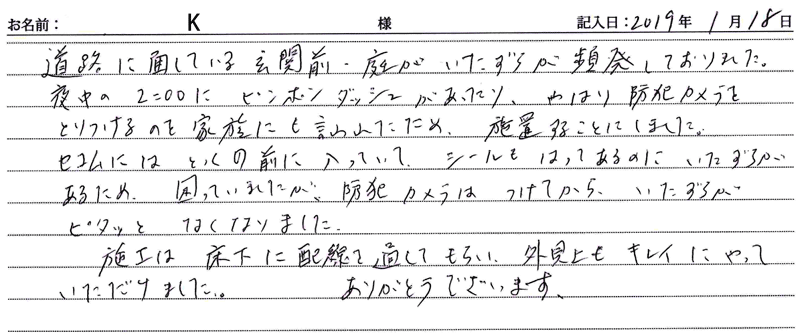 お名前： K 様 記入日：2019年 1月18日
道路に面している玄関前・庭がいたずらが頻発しておりました。
夜中の2:00にピンポンダッシュがあったり、やはり防犯カメラを
とりつけるのを家族にも言われたため、施置することにしました。
セコムにはとくの前に入っていて、シールもはってあるのにいたずらが
あるため、困っていましたが、防犯カメラはつけてから、いたずらが
ピタッとなくなりました。
施工は床下に配線を通してもらい、外見上もキレイにやって
いただけました。 ありがとうございます、